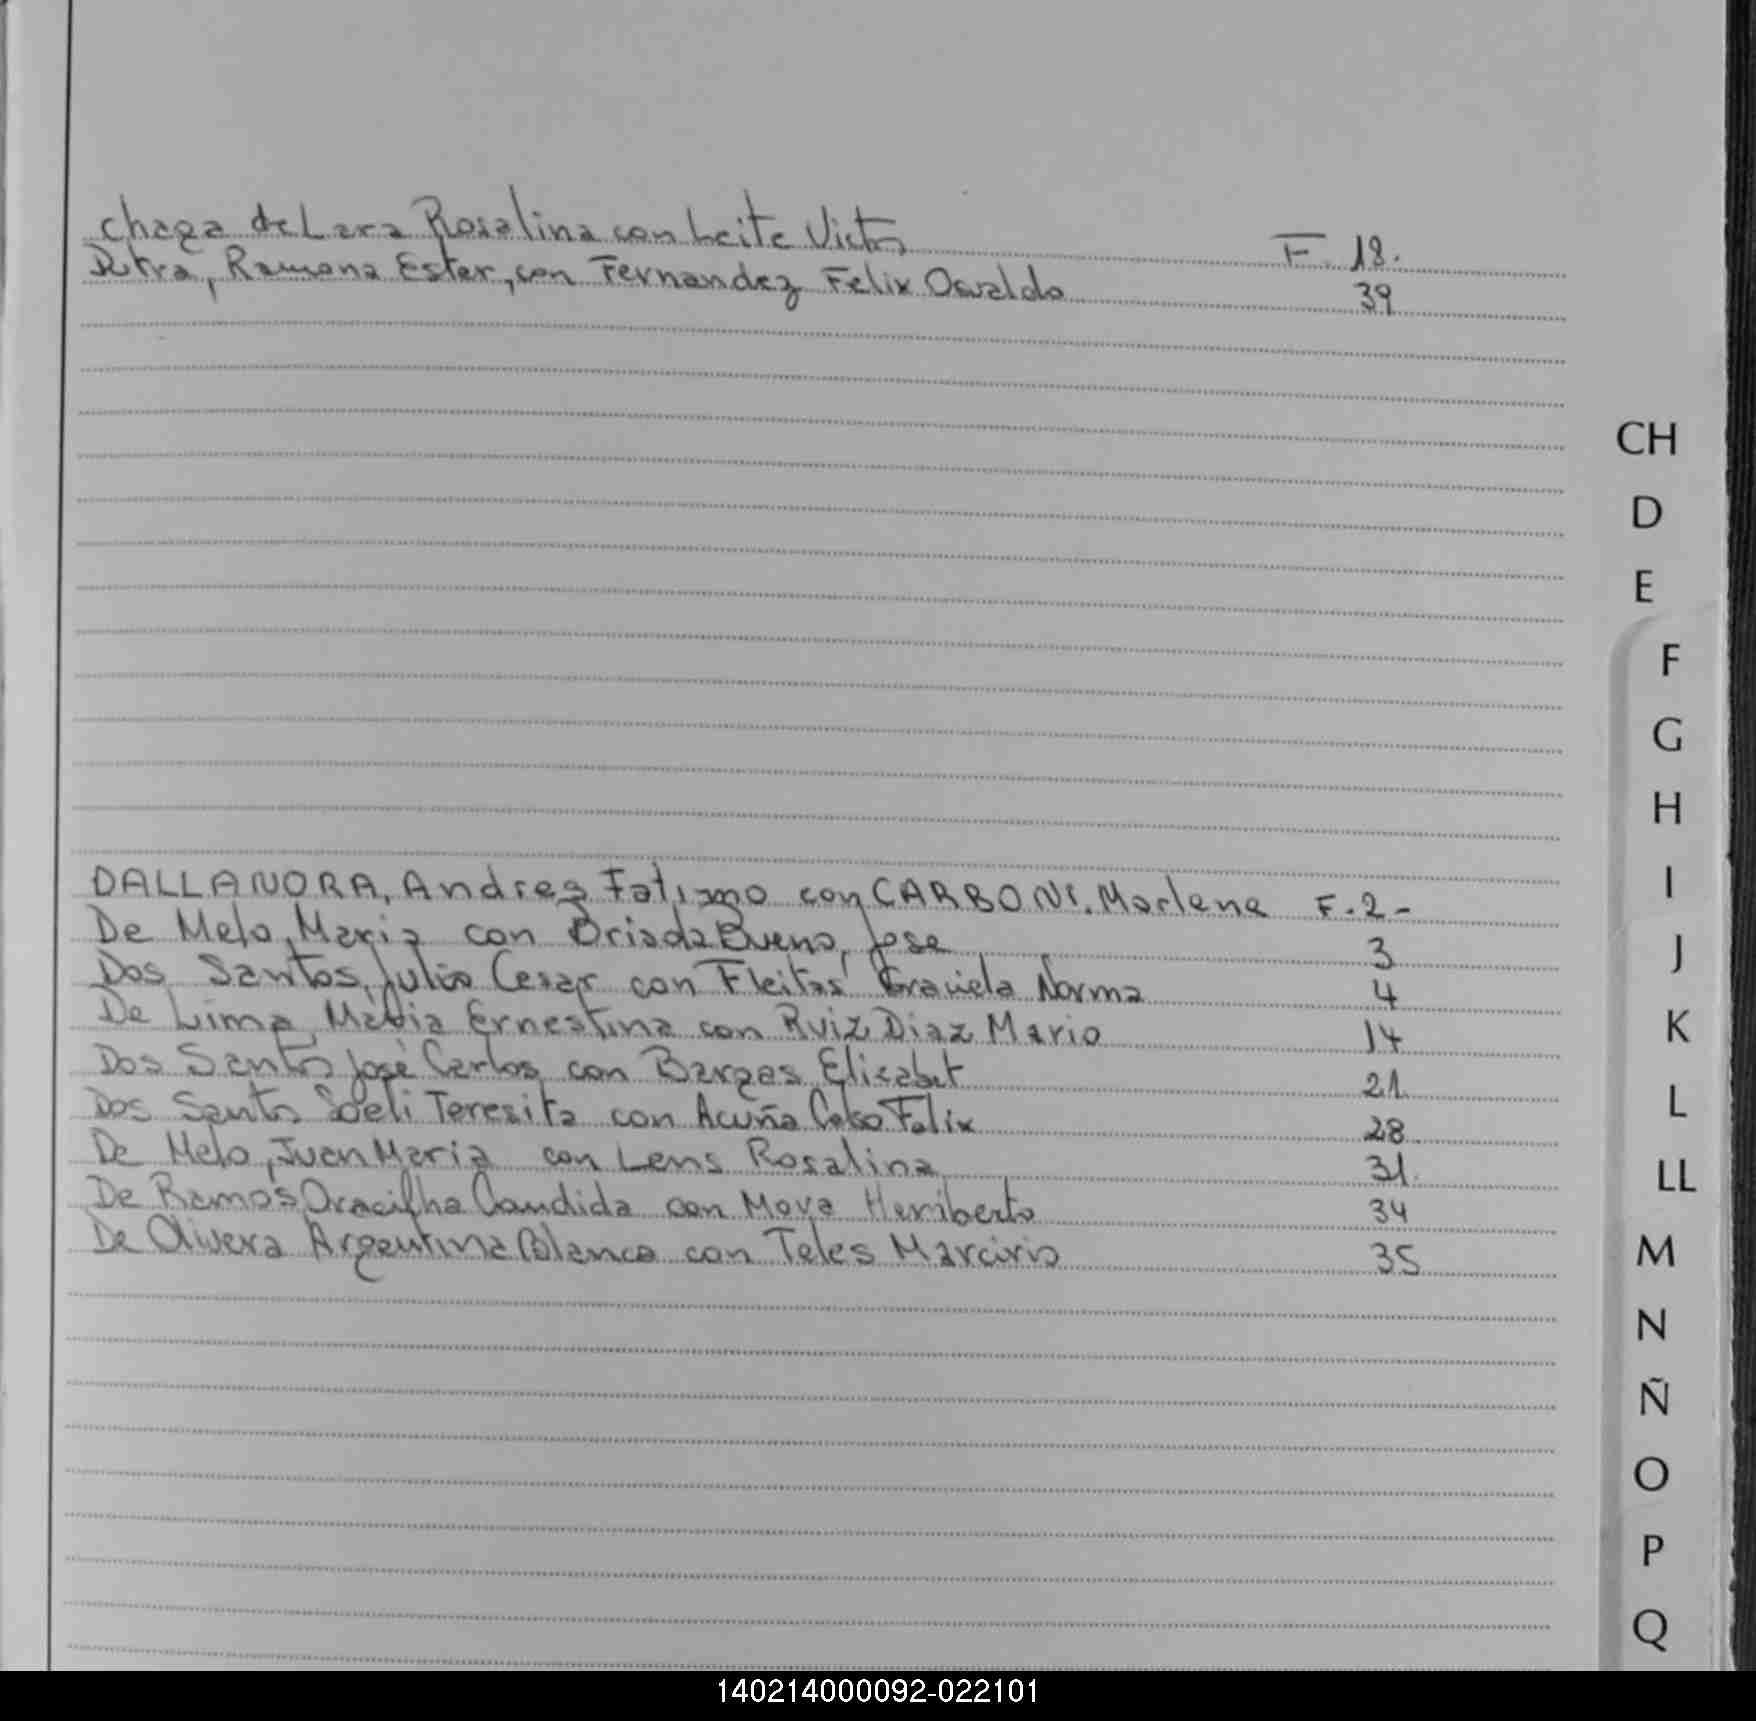 Chaga de Lara Rosalina con Leite Victor F 18.
Dutra, Ramona Ester, con Fernandez Felix Osvaldo 39
CH
D
E
F
G
H
I
DALLANORA, Andres Fatimo con CARBONI. Marlene F. 2-
De Melo, Maria con Briada Bueno, Jose 3
J
Dos Santos, Julio Cesar con Fleitas Graciela Norma 4
De Lima, Maria Ernestina con Ruiz Diaz Mario 14
K
Dos Santos José Carlos con Bargas Elisabet 21
L
Dos Santos Soeli Teresita con Acuña Celso Felix 28
De Melo, Juan Maria con Lens Rosalina 31.
LL
De Ramos Oracilha Candida con Moya Heriberto 34
De Olivera Argentina Blanca con Teles Marcirio 35
M
N
Ñ
O
P
Q
140214000092-022101